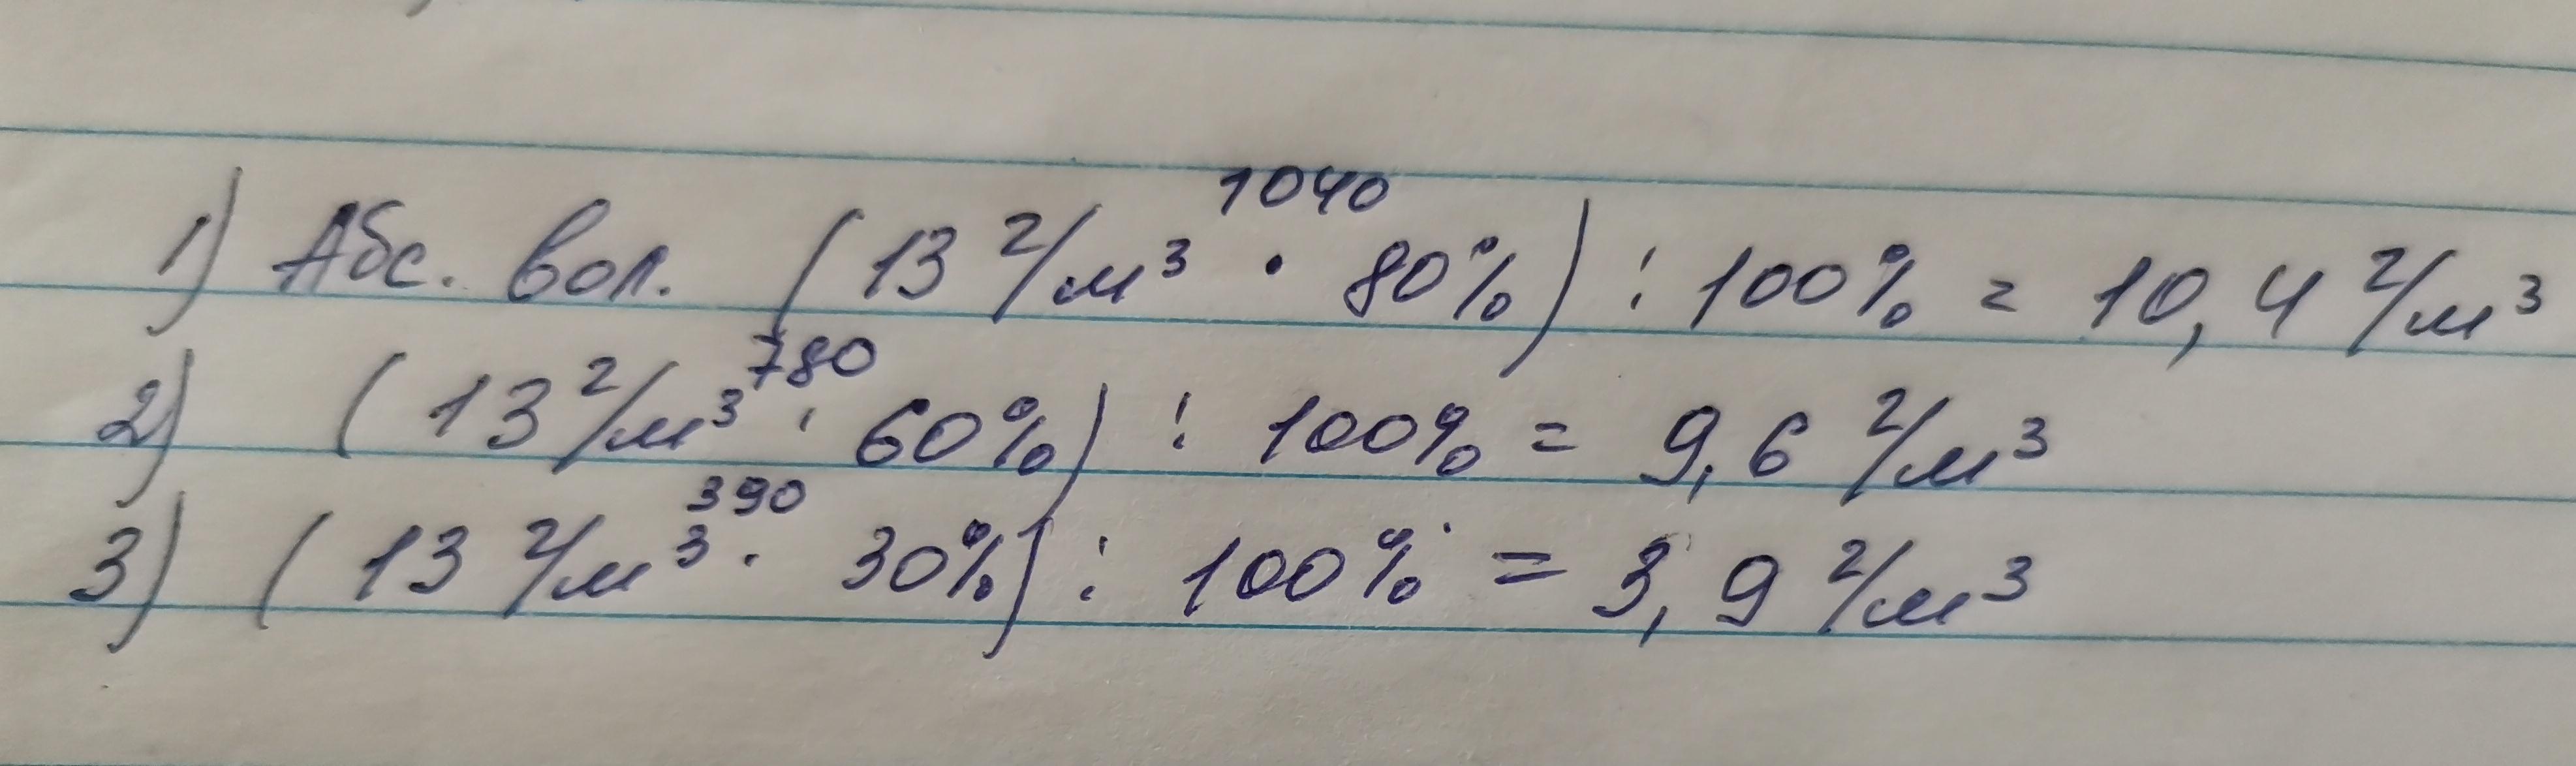 1040
1) Абс. вол. (13 г/м³ · 80%) : 100% = 10,4 г/м³
780
2) (13 г/м³ · 60%) : 100% = 9,6 г/м³
390
3) (13 г/м³ · 30%) : 100% = 3,9 г/м³